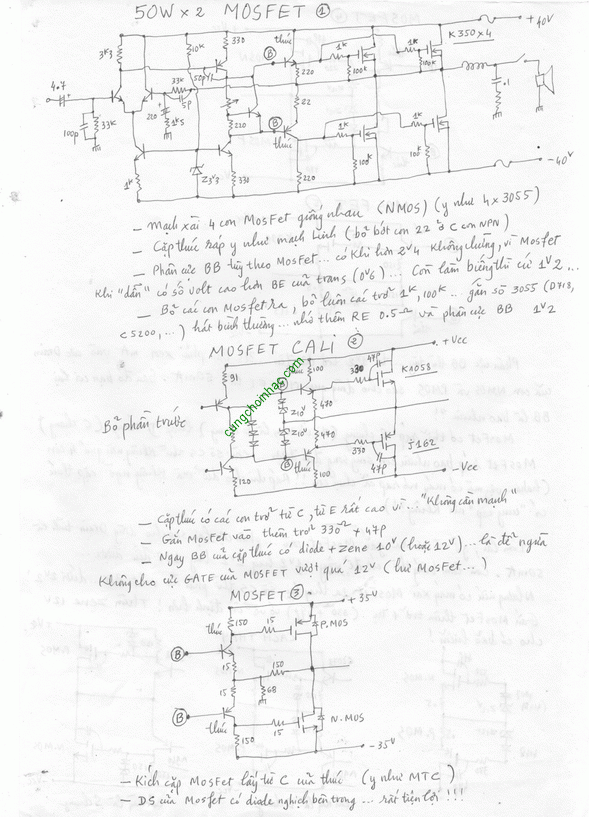 50W x 2 MOSFET ①
+40V
K350x4
thúc
3k3
10k
330
B
1k
1k
100k
100k
50pVL
33k
220
4.7
5p
.1
100p
33k
220
1k5
220
22
B
1k
1k
thúc
1k
Z3V3
330
220
100k
100k
-40V
– Mạch xài 4 con MosFet giống nhau (NMOS) (y như 4x3055)
– Cặp thúc ráp y như mạch Linh (bỏ bớt con 22 ở C con NPN)
– Phân cực BB tùy theo MosFet... có khi hơn 2V4 không chừng, vì Mosfet
khi "dẫn" có số volt cao hơn BE của trans (0V6)... Còn làm biếng thì cứ 1V2...
– Bỏ các con Mosfet ra, bỏ luôn các trở 1k, 100k.. gắn sò 3055 (D718,
C5200,...) hát bình thường... nhớ thêm RE 0.5Ω và phân cực BB 1V2
MOSFET CALI ②
+Vcc
91
100
47P
330
K1058
470
Z10V
Z10V
470
Bộ phận trước
B
thúc
330
J162
47P
120
100
-Vcc
cungchoinhac.com
– Cặp thúc có các con trở từ C, từ E rất cao vì... "Không cần mạnh"
– Gắn MosFet vào thêm trở 330 + 47P
– Ngay BB của cặp thúc có diode + Zene 10V (hoặc 12V)... là để ngừa
không cho cực GATE của MOSFET vượt quá 12V (hư MosFet...)
MOSFET ③
+35V
thúc
150
15
P.MOS
B
15
150
15
68
B
thúc
15
N.MOS
150
-35V
– Kích cặp MosFet lấy từ C của thúc (y như MTC)
– DS của Mosfet có diode nghịch bên trong... rất tiện lợi !!!